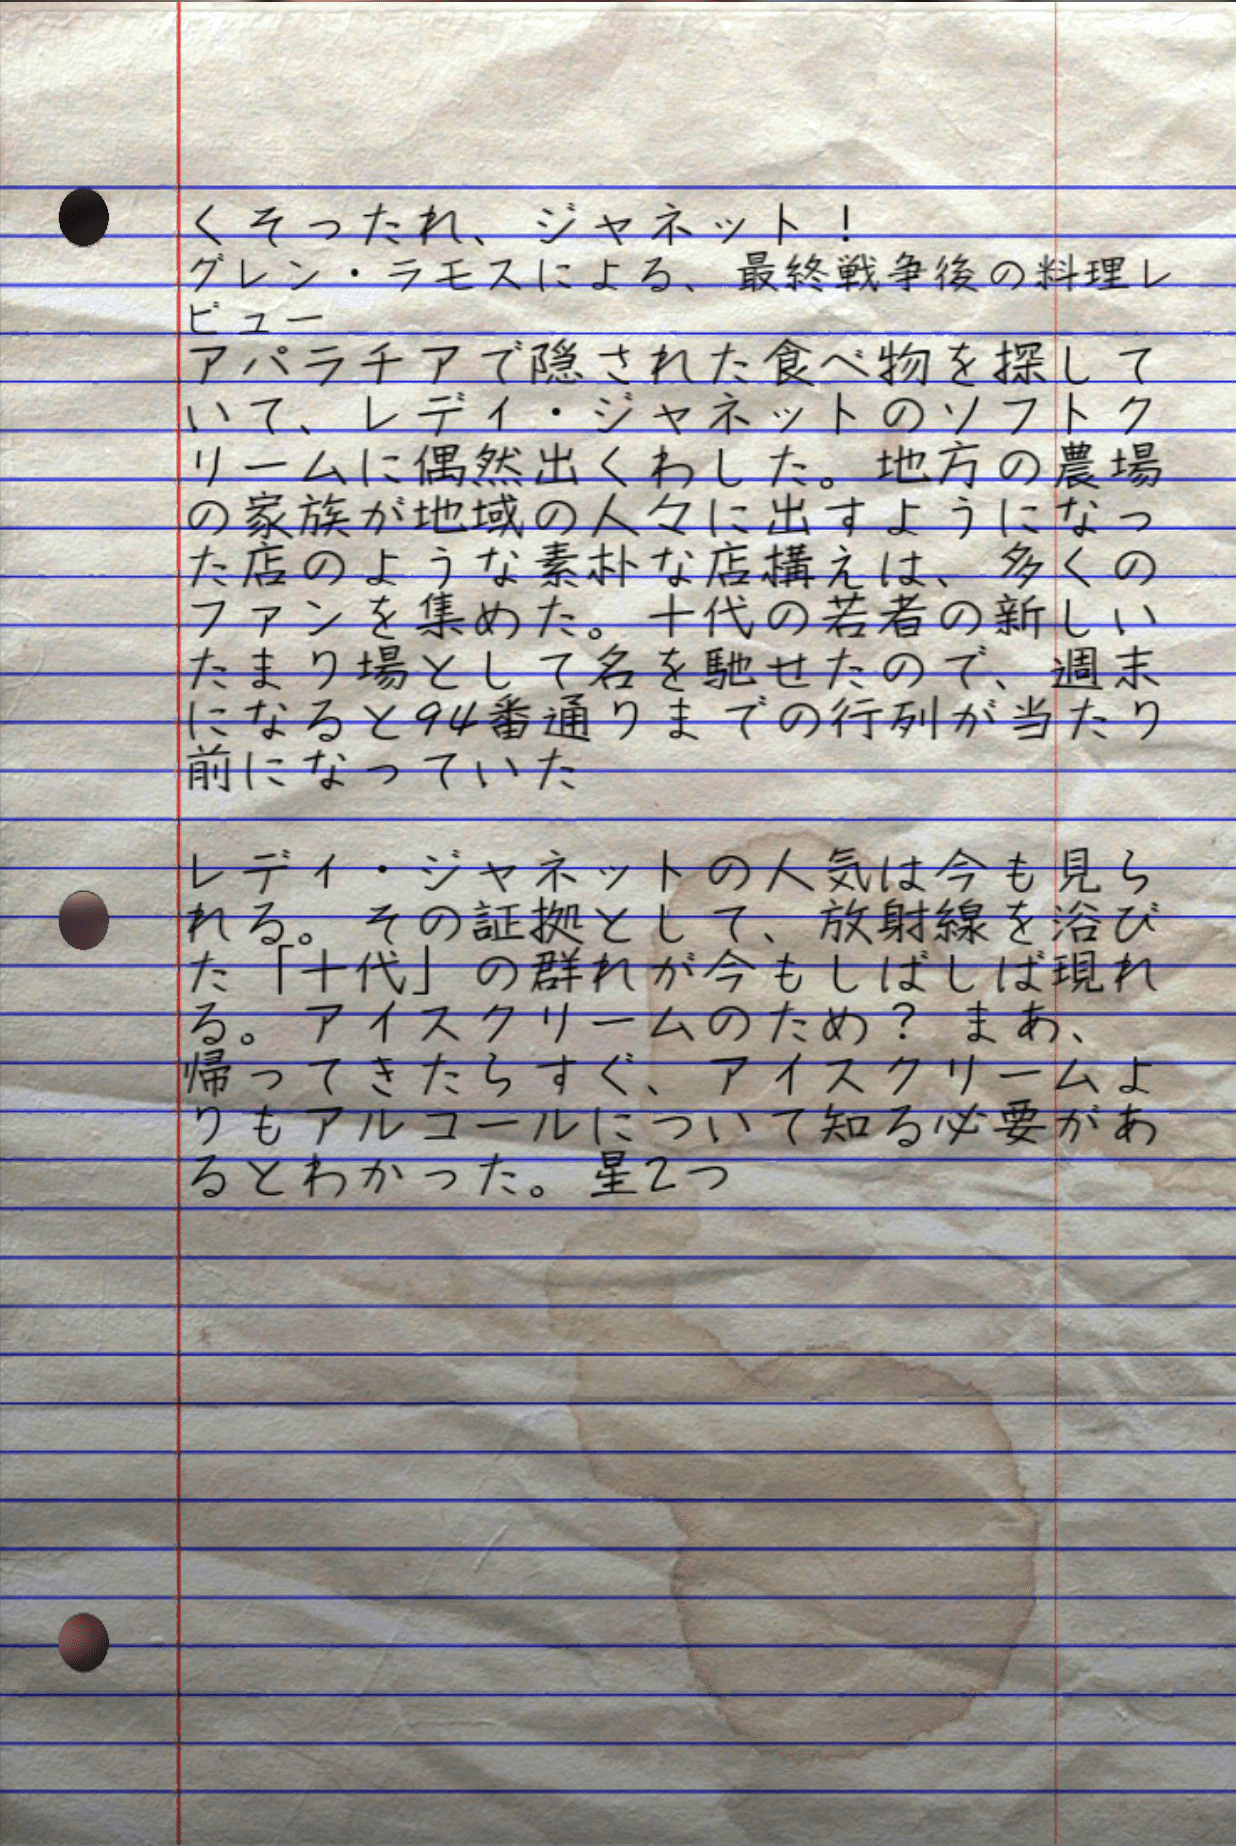 くそったれ、ジャネット！
グレン・ラモスによる、最終戦争後の料理レ
ビュー
アパラチアで隠された食べ物を探して
いて、レディ・ジャネットのソフトク
リームに偶然出くわした。地方の農場
の家族が地域の人々に出すようになっ
た店のような素朴な店構えは、多くの
ファンを集めた。十代の若者の新しい
たまり場として名を馳せたので、週末
になると94番通りまでの行列が当たり
前になっていた
レディ・ジャネットの人気は今も見ら
れる。その証拠として、放射線を浴び
た「十代」の群れが今もしばしば現れ
る。アイスクリームのため？ まあ、
帰ってきたらすぐ、アイスクリームよ
りもアルコールについて知る必要があ
るとわかった。星2つ